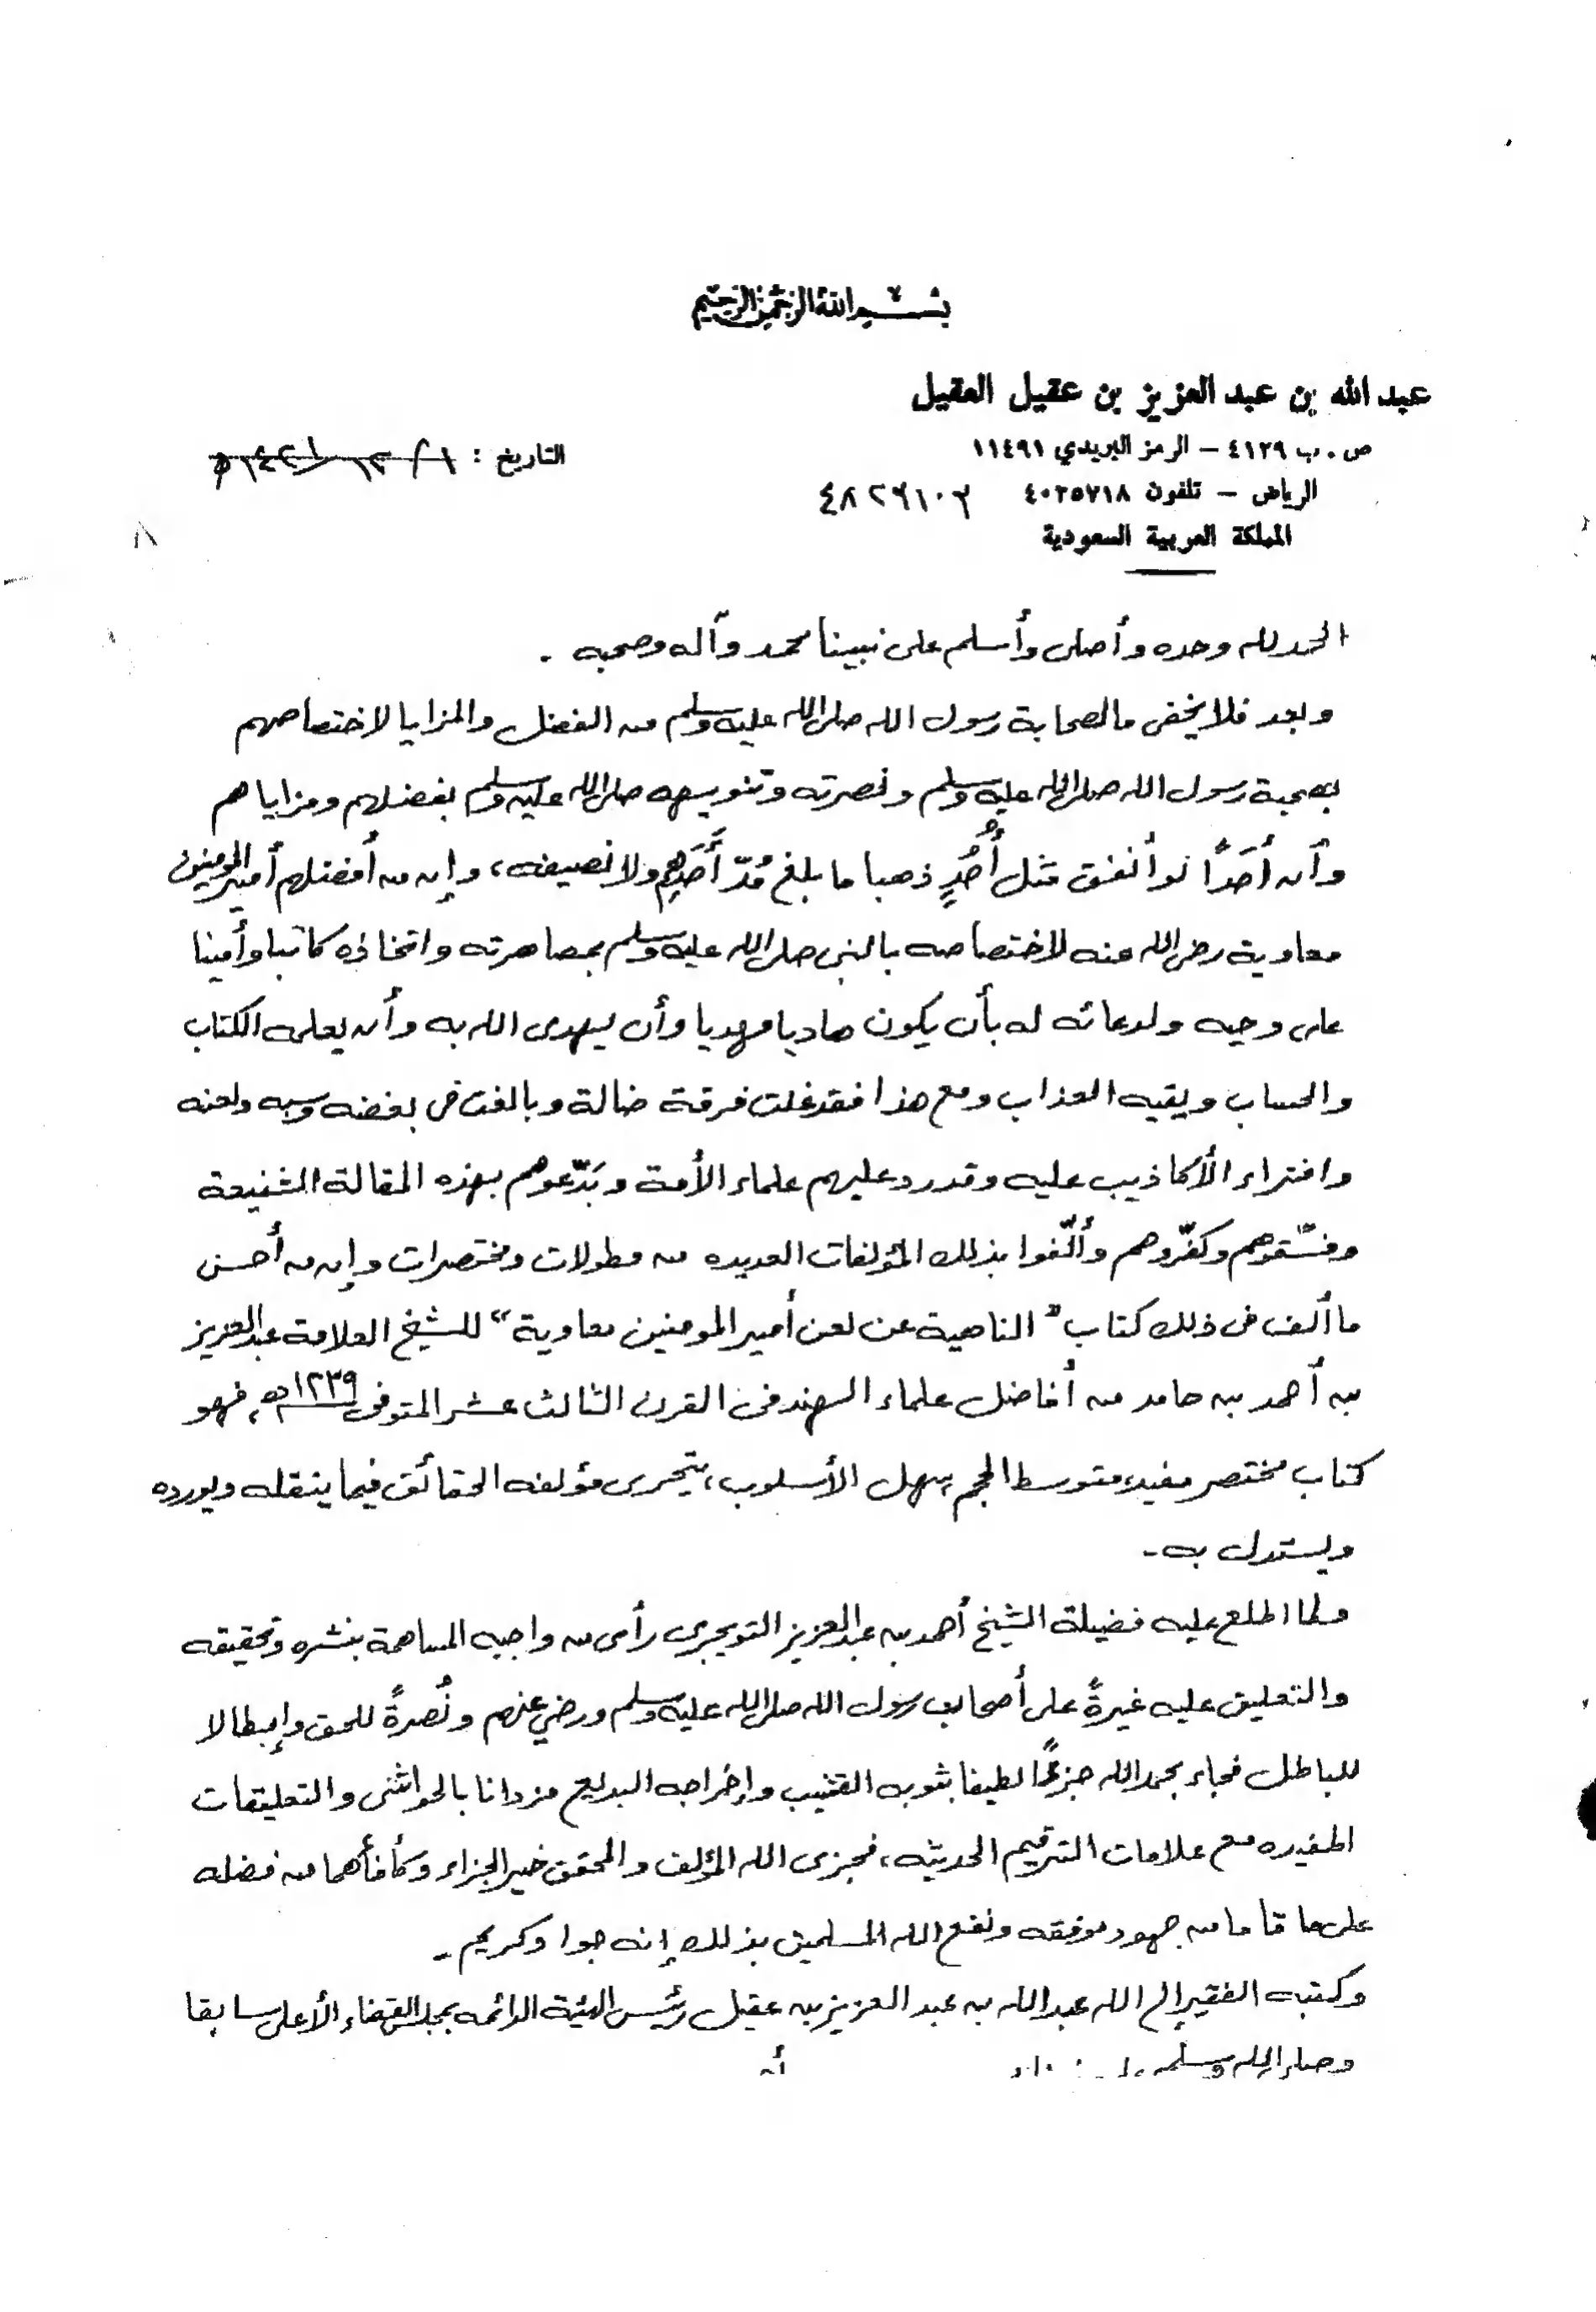 بسم الله الرحمن الرحيم
عبد الله بن عبد العزيز بن عقيل العقيل
ص . ب ٤١٢٩ – الرمز البريدي ١١٤٩١
التاريخ : ٢١ / ١٢ / ١٤٢١ هـ
الرياض – تلفون ٤٠٢٥٧١٨ ٤٨٢٦١٠٢
المملكة العربية السعودية
الحمد لله وحده وأصلى وأسلم على نبينا محمد وآله وصحبه .
وبعد فلا يخفى ما لصحابة رسول الله صلى الله عليه وسلم من الفضل والمزايا لاختصاصهم
بصحبة رسول الله صلى الله عليه وسلم ونصرته وتنويهه صلى الله عليه وسلم بفضلهم ومزاياهم
وأن أَحَدًا لو أنفق مثل أُحُدٍ ذهبا ما بلغ مُدّ أَحَدِهِم ولا نصيفه، وإن من أفضلهم أمير المؤمنين
معاوية رضى الله عنه لاختصاصه بالنبى صلى الله عليه وسلم بمصاهرته واتخاذه كاتبا وأمينا
على وحيه ولدعائه له بأن يكون هاديا مهديا وأن يهدى الله به وأن يعلمه الكتاب
والحساب ويقيه العذاب ومع هذا فقد غلت فرقة ضالة وبالغت فى بغضه وسبه ولعنه
وافتراء الأكاذيب عليه وقد رد عليهم علماء الأمة وبَدّعوهم بهذه المقالة الشنيعة
وفسّقوهم وكفّروهم وألّفوا بذلك المؤلفات العديده من مطولات ومختصرات وإن من أحسن
ما ألف فى ذلك كتاب " الناهية عن لعن أمير المومنين معاوية " للشيخ العلامة عبد العزيز
بن أحمد بن حامد من أفاضل علماء الهند فى القرن الثالث عشر المتوفى ١٢٣٩ هـ، فهو
كتاب مختصر مفيد، متوسط الحجم، سهل الأسلوب، يتحرى مؤلفه الحقائق فيما ينقله ويورده
ويستدل به -
ولما اطلع عليه فضيلة الشيخ أحمد بن عبد العزيز التويجرى رأى من واجبه المساهمة بنشره وتحقيقه
والتعليق عليه غيرةً على أصحاب رسول الله صلى الله عليه وسلم ورضي عنهم ونُصرةً للحق وإبطالا
للباطل فجاء بحمد الله جزءًا لطيفا بثوبه القشيب وإخراجه البديع مزدانا بالحواشى والتعليقات
المفيده مع علامات الترقيم الحديثه، فجزى الله المؤلف والمحقق خير الجزاء وكافأهما من فضله
على ما قاما من جهود موفقه ونفع الله المسلمين بذلك إنه جواد كريم -
وكتبه الفقير إلى الله عبد الله بن عبد العزيز بن عقيل رئيس الهيئة الدائمه بمجلس القضاء الأعلى سابقا
وصلى الله وسلم